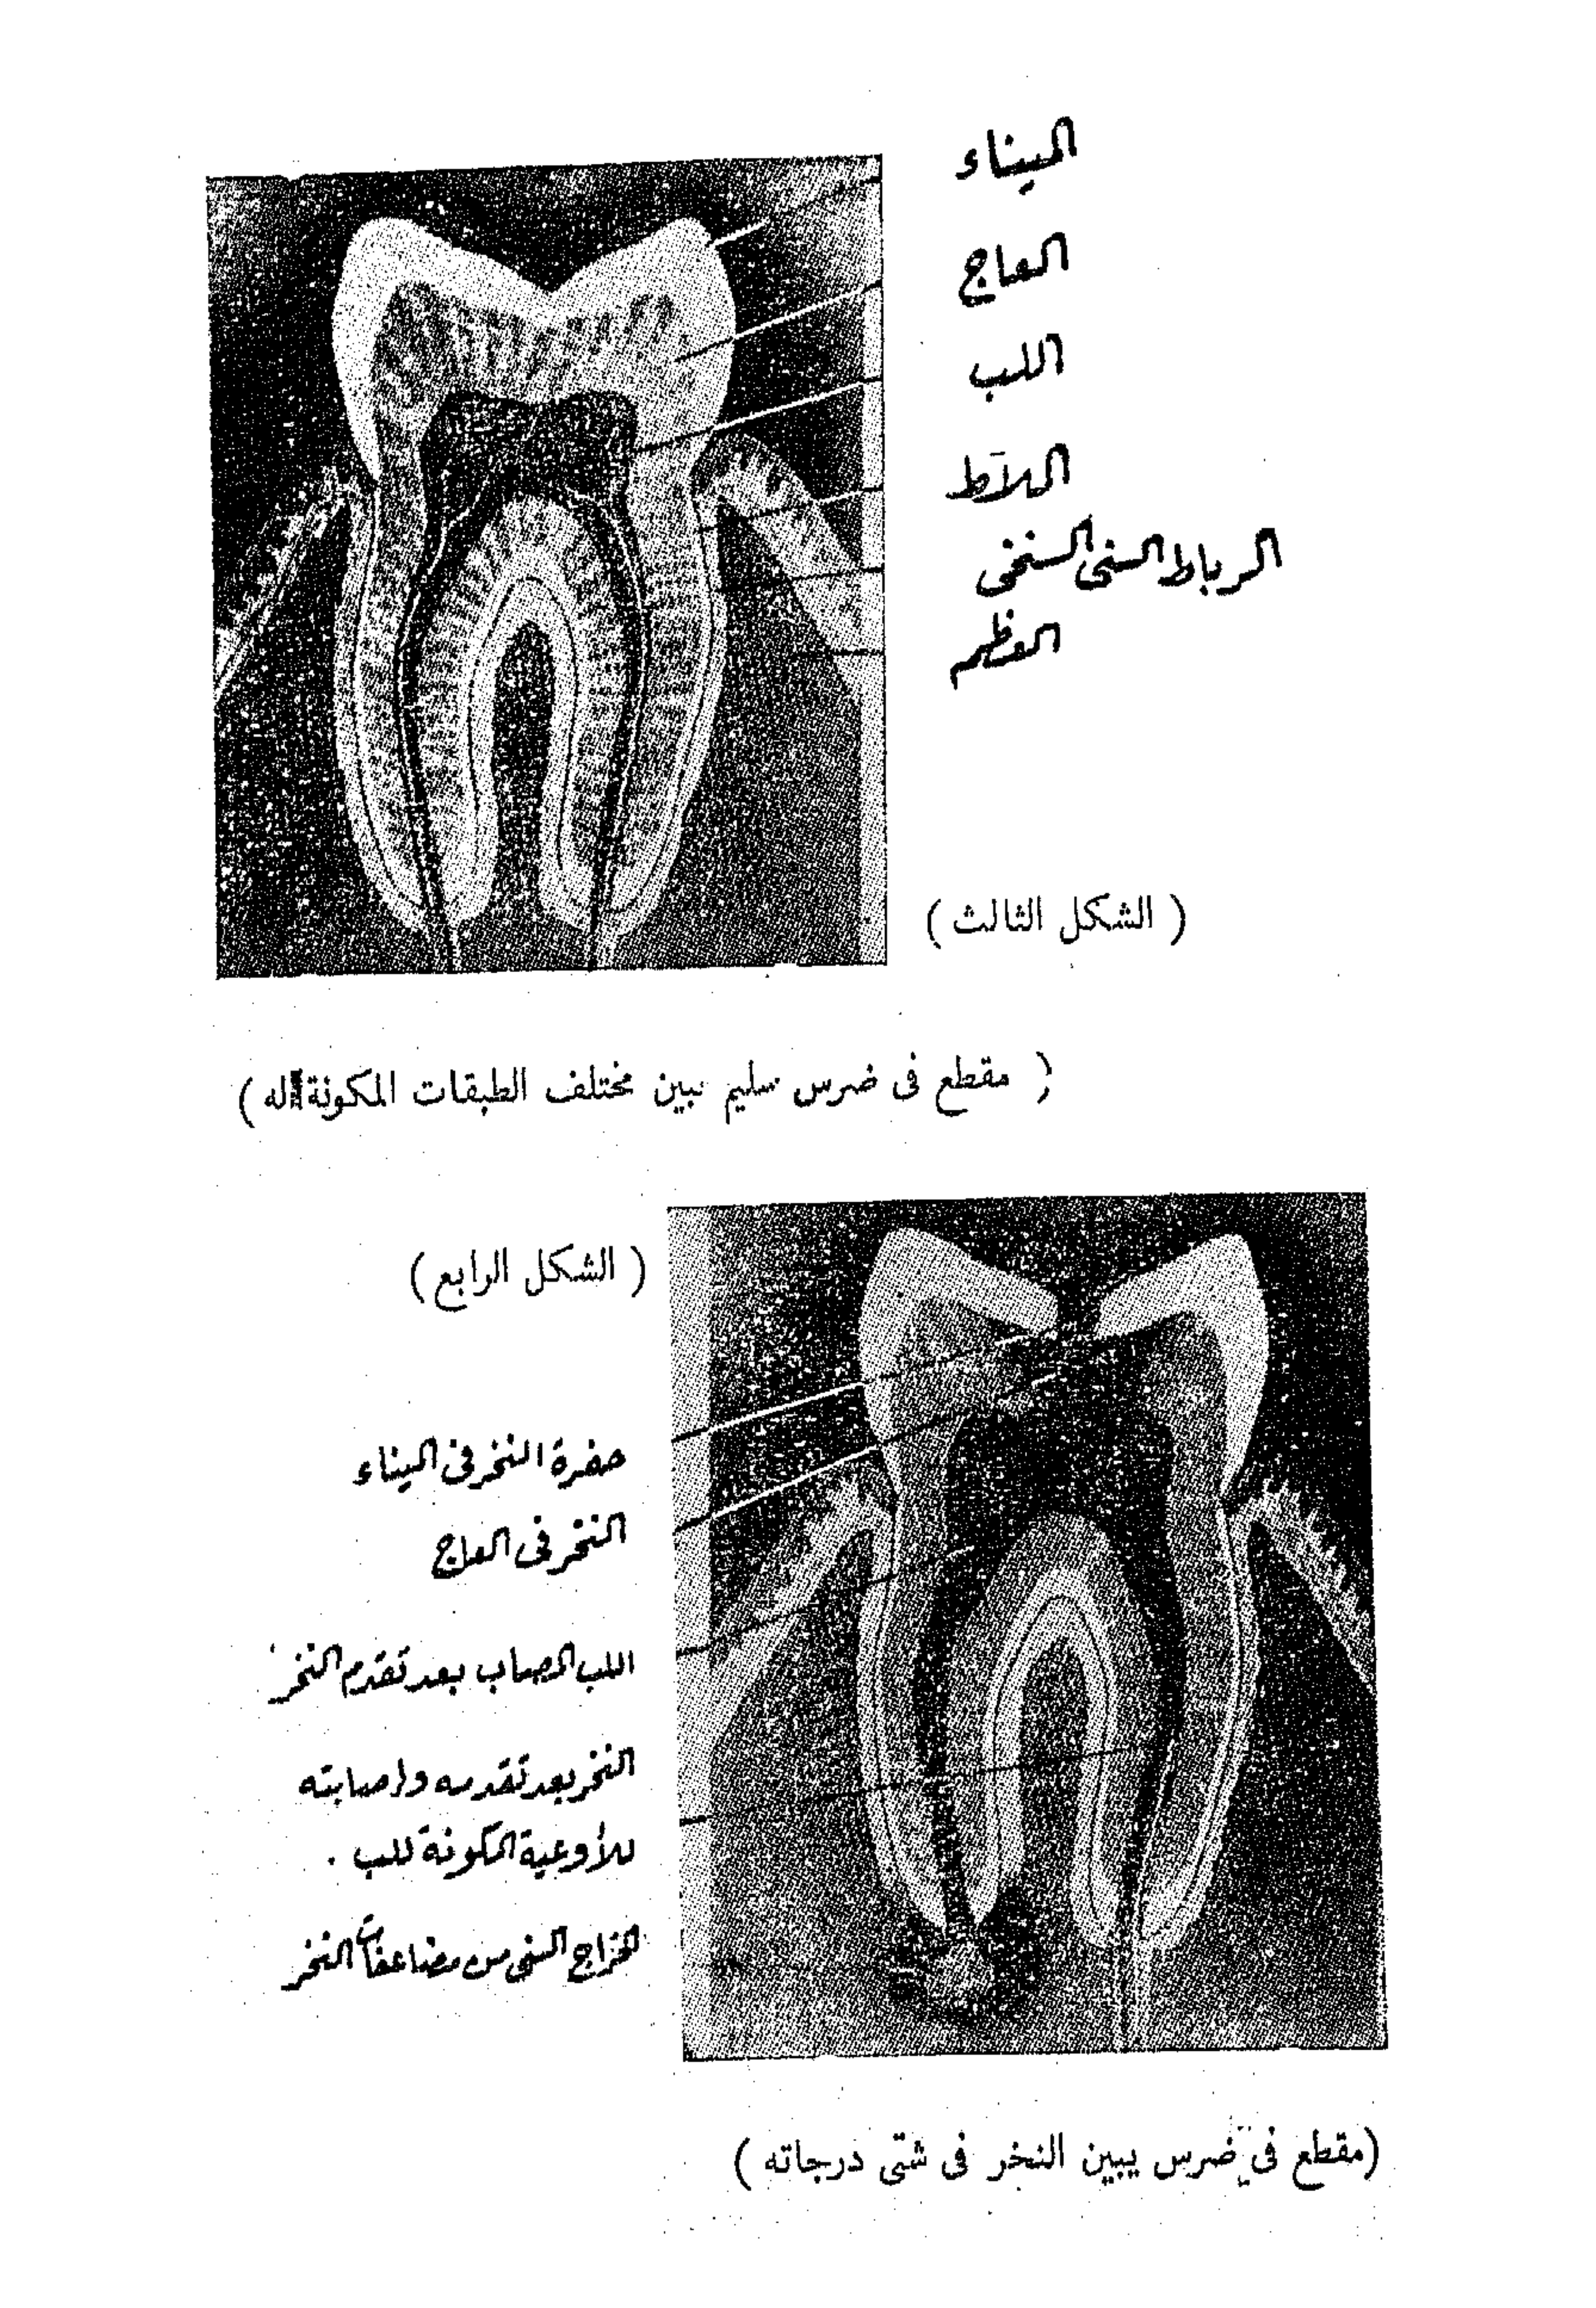 الميناء
العاج
اللب
الملاط
الرباط السنى السنخى
العظم
( الشكل الثالث )
( مقطع فى ضرس سليم يبين مختلف الطبقات المكونة له )
( الشكل الرابع )
حفرة النخر فى الميناء
النخر فى العاج
اللب المصاب بعد تقدم النخر
النخر بعد تقدمه وإصابته
للأوعية المكونة للب .
الخراج السنى من مضاعفات النخر
(مقطع فى ضرس يبين النخر فى شتى درجاته )